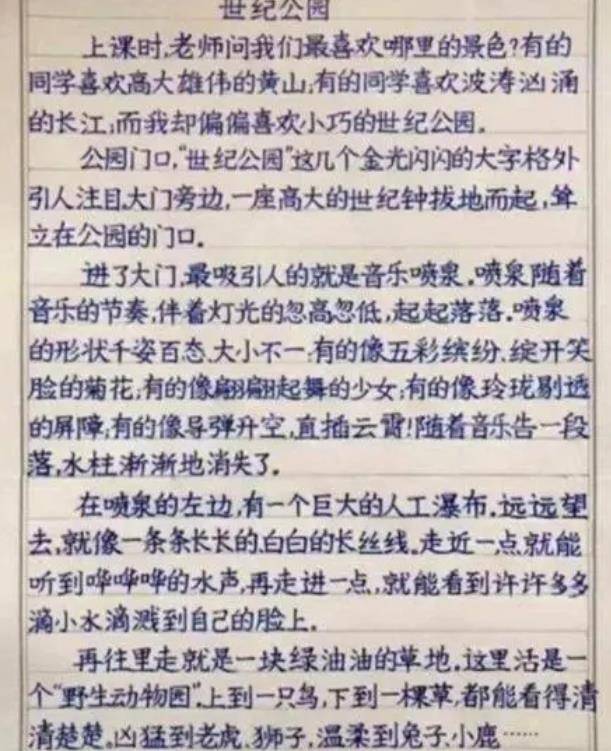 世纪公园
上课时,老师问我们最喜欢哪里的景色?有的
同学喜欢高大雄伟的黄山;有的同学喜欢波涛汹涌
的长江;而我却偏偏喜欢小巧的世纪公园。
公园门口,“世纪公园”这几个金光闪闪的大字格外
引人注目.大门旁边,一座高大的世纪钟拔地而起,耸
立在公园的门口。
进了大门,最吸引人的就是音乐喷泉。喷泉随着
音乐的节奏,伴着灯光的忽高忽低,起起落落。喷泉
的形状千姿百态.大小不一:有的像五彩缤纷、绽开笑
脸的菊花;有的像翩翩起舞的少女;有的像玲珑剔透
的屏障;有的像导弹升空,直插云霄!随着音乐告一段
落,水柱渐渐地消失了。
在喷泉的左边,有一个巨大的人工瀑布。远远望
去,就像一条条长长的、白白的长丝线。走近一点,就能
听到哗哗哗的水声,再走进一点,就能看到许许多多
滴小水滴溅到自己的脸上。
再往里走就是一块绿油油的草地。这里活是一
个“野生动物园”。上到一只鸟,下到一棵草,都能看得清
清楚楚。凶猛到老虎、狮子,温柔到兔子、小鹿……